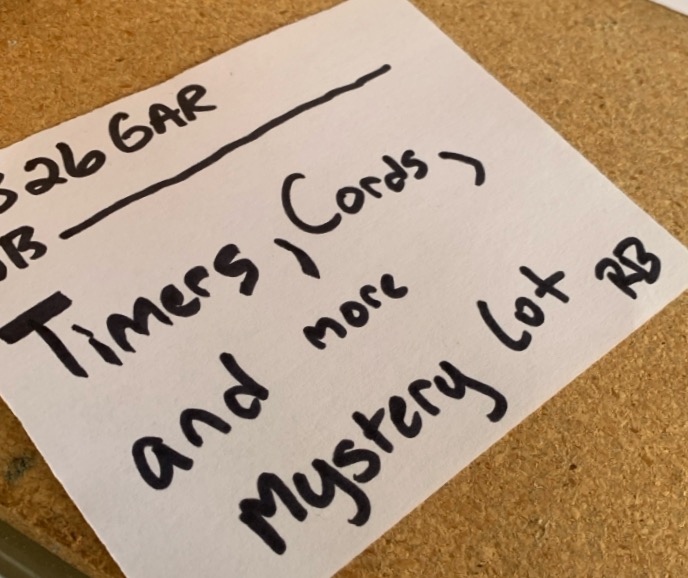 326 GAR
JB
Timers, Cords,
and more
Mystery Lot RB